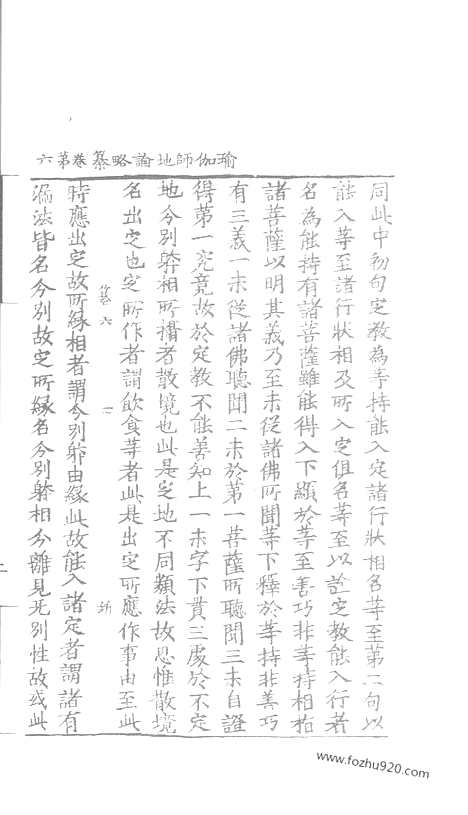 瑜伽師地論略纂卷第六
同此中初句定教為等持能入定諸行狀相名等至第二句以
能入等至諸行狀相及所入定俱名等至以能定教能入行者
名為能持有諸菩薩雖能得入下顯於等至善巧非等持相指
諸菩薩以明其義乃至未從諸佛所聞等下釋於等持非善巧
有三義一未從諸佛聽聞二未於第一菩薩所聽聞三未自證
得第一究竟故於定教不能善知上一未字下貫三處於不定
地分別體相所攝者散境也此是定地不同類法故思惟散境
名出定也定所作者謂飲食等者此是出定所應作事由至此
篡六 二 斫
時應出定故所緣相者謂分別體由緣此故能入諸定者謂諸有
漏法皆名分別故定所緣名分別體相分離見无別性故或此
www.fozhu920.com